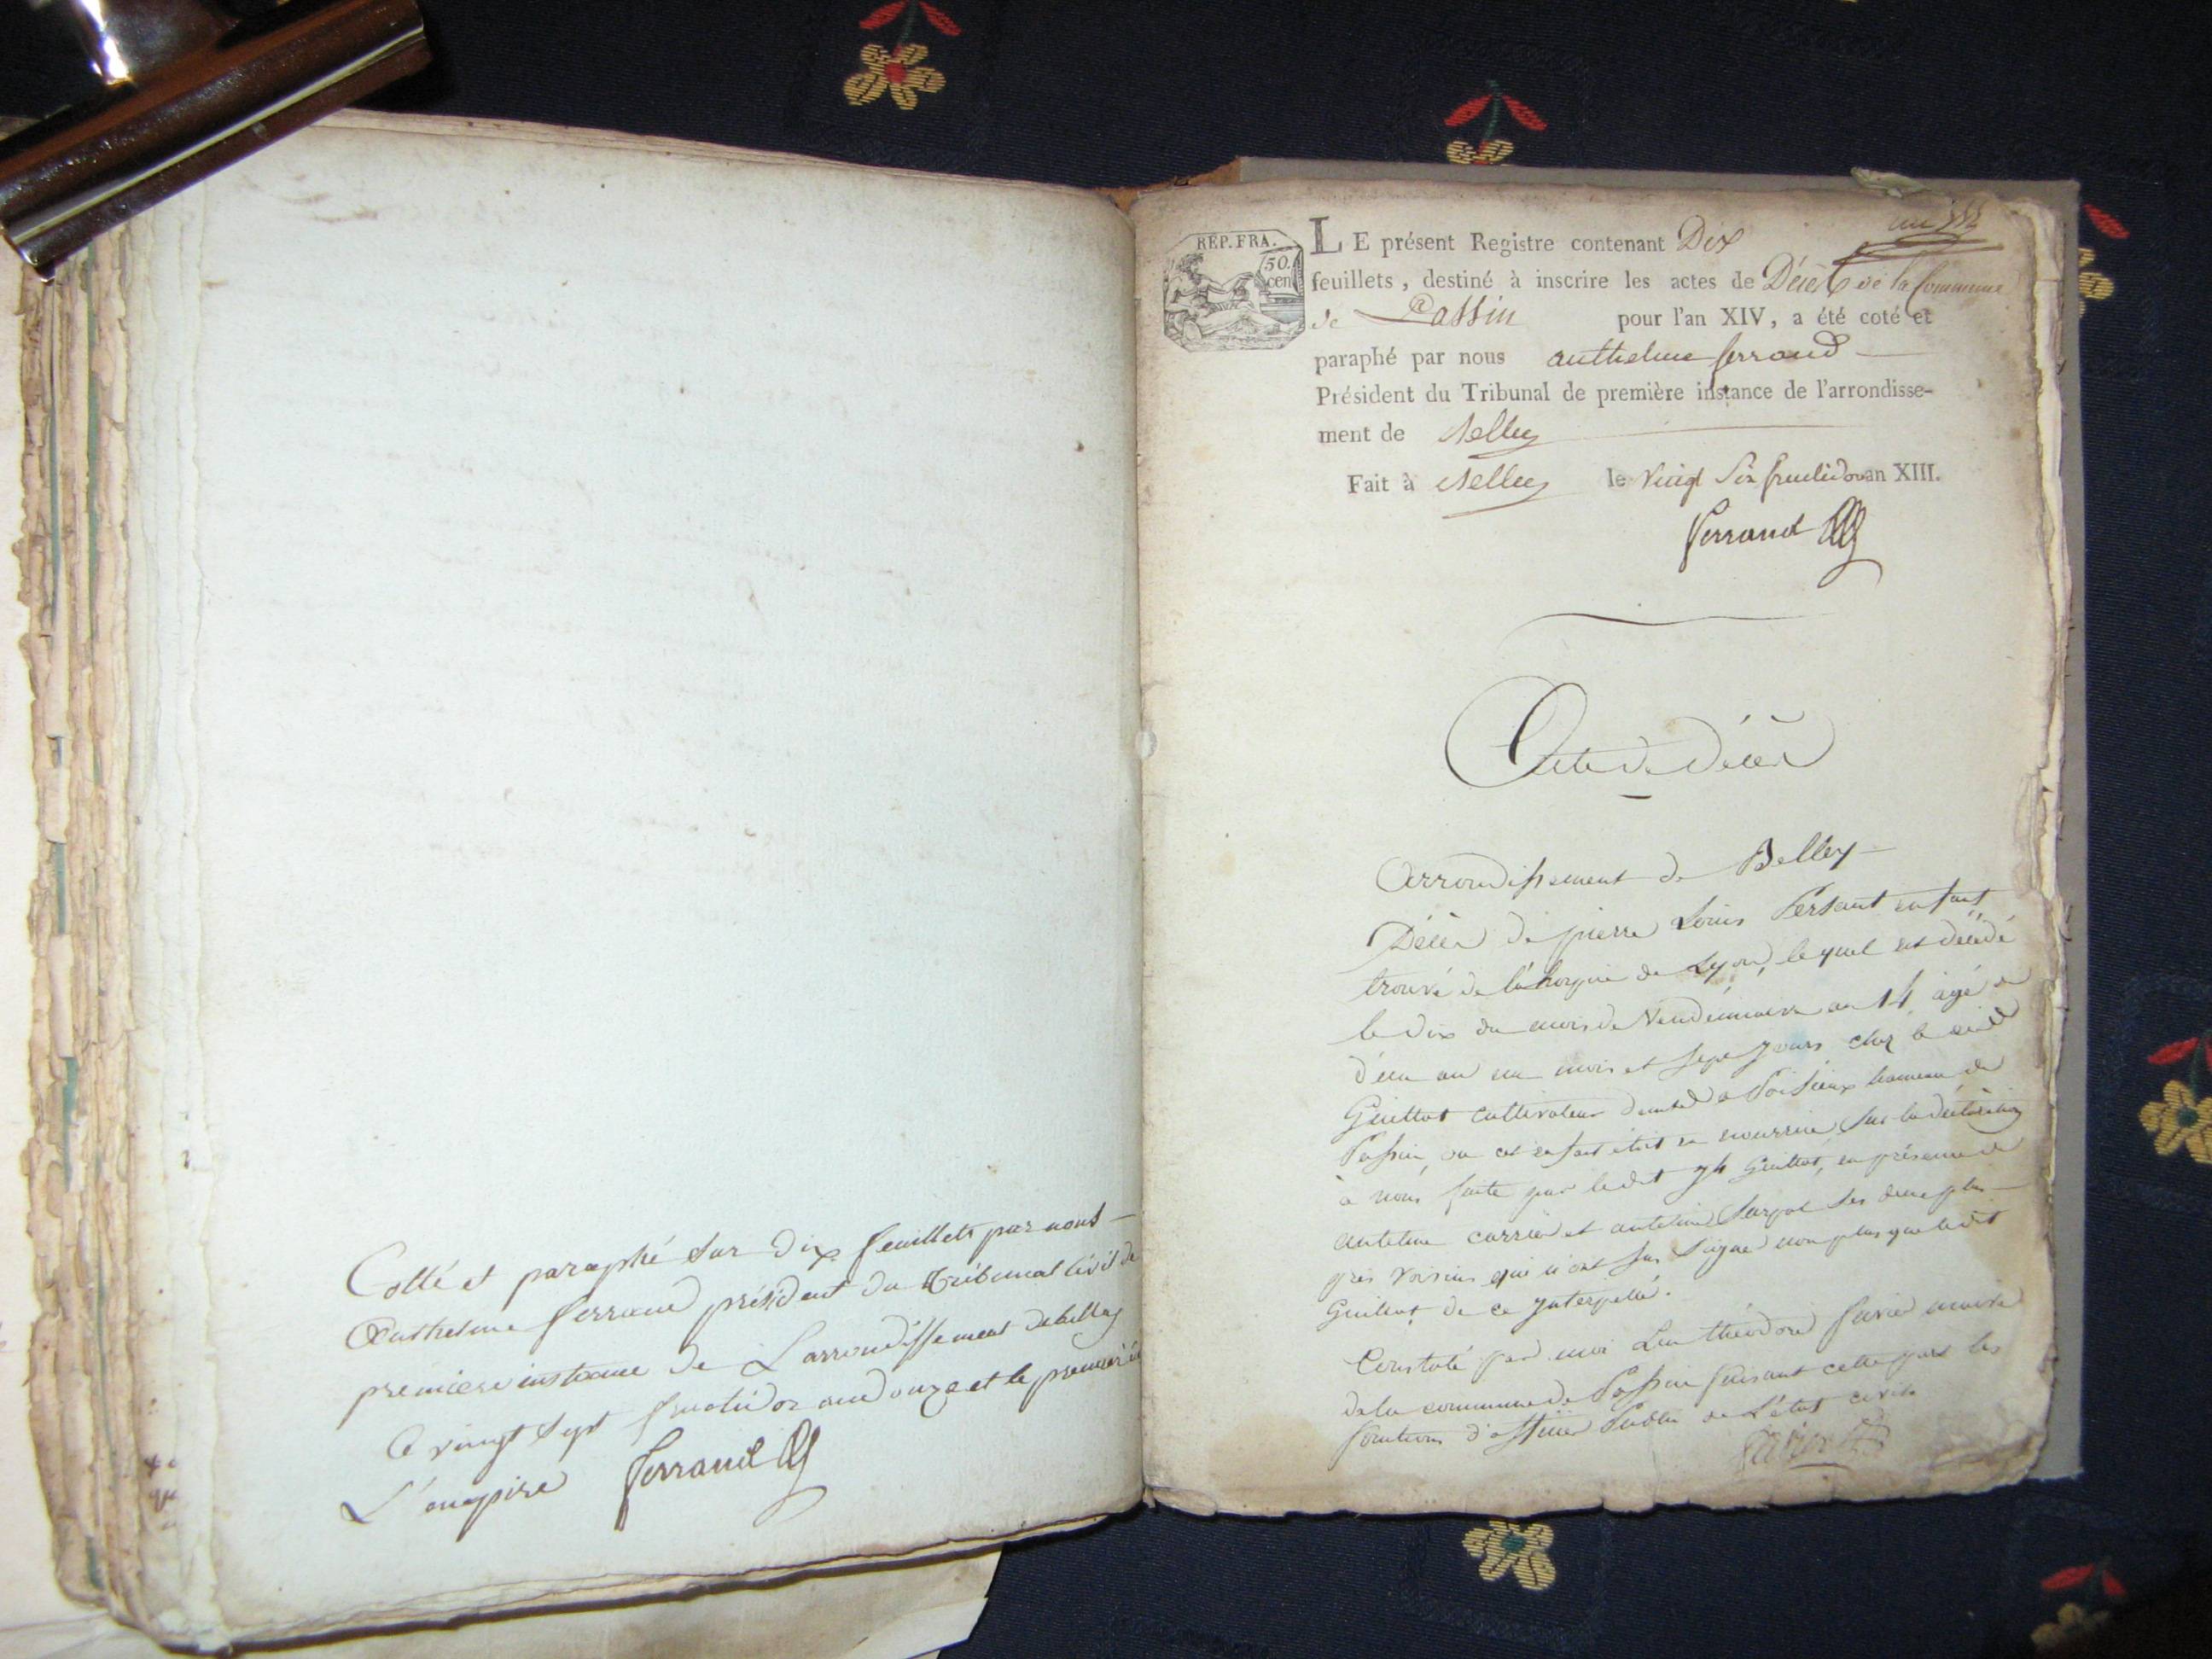 Cotté et paraphé sur dix feuillets par nous
Anthelme ferrand président du tribunal civil de
premiere instance de Larrondissement debelley
Ce vingt sept fructidor an douze et le premier de
L'empire ferrand
REP. FRA.
50. cen
un
LE présent Registre contenant Dix
feuillets, destiné à inscrire les actes de Décès de la Commune
de Passin pour l'an XIV, a été coté et
paraphé par nous anthelme ferrand
Président du Tribunal de première instance de l'arrondisse-
ment de Belley
Fait à Belley le Vingt Six fructidor an XIII.
ferrand
Acte de décès
Arrondissement de Belley
Décès de pierre Louis Persant enfant
trouvé de de Lyon, le quel est décédé
le dix du mois de Vendémiaire an 14 agé
d'un an un mois et sept jours chez le
Guillot cultivateur a Poisieux hameau de
Passin, ou cet enfant était en nourrice, sur la déclaration
à nous faite par ledit Guillot, en présence de
antelme carrier et antelme ses deux plus
près voisins qui n'ont su signer non plus que ledit
Guillot de ce ynterpellé.
Constaté par moi théodore favier maire
de la commune de Passin faisant cette part les
fonctions d'officier Public de L'état civil
favier